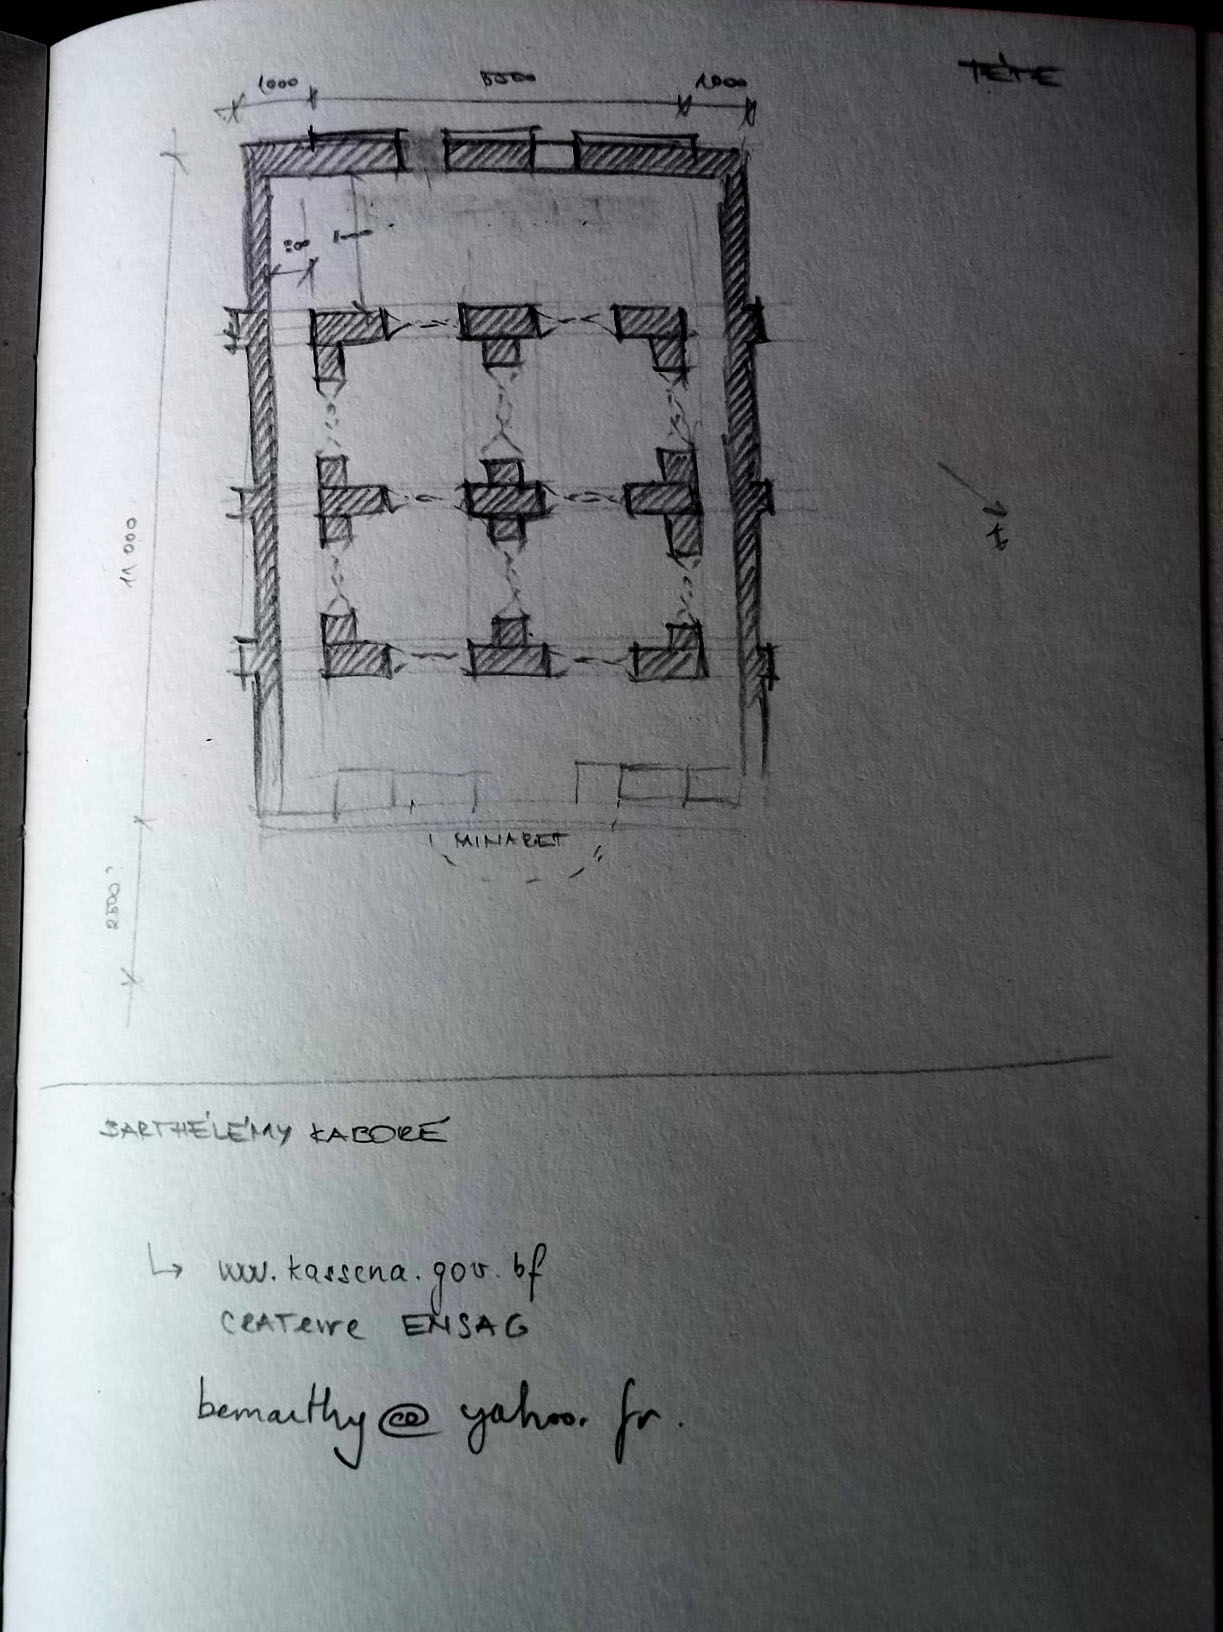 TÉTE
1000
5500
1000
11 000
2500
MINARET
BARTHÉLÉMY KABORÉ
↳ www.kassena.gov.bf
CRATerre ENSAG
bemarthy@yahoo.fr.